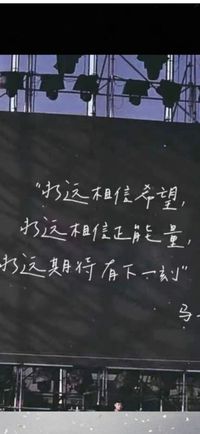 "永远相信希望,
永远相信正能量,
永远期待有下一刻"
马